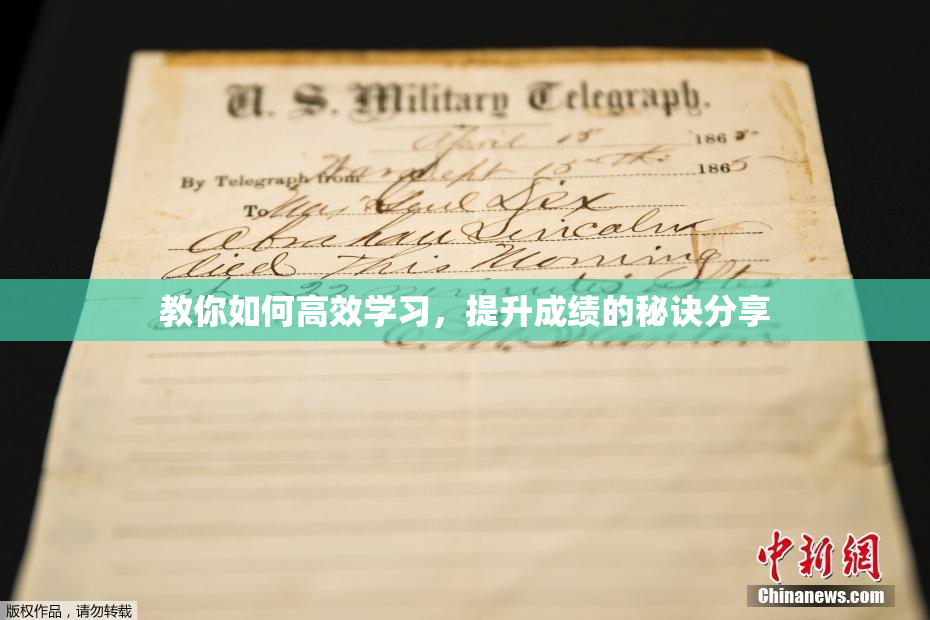 U. S. Military Telegraph.
April 15 1865
By Telegraph from War Dept 15th 1865
To Maj Genl Dix
Abraham Lincoln
died This Morning
22 minutes after
教你如何高效学习，提升成绩的秘诀分享
E. M. Stanton
中新网
Chinanews.com
版权作品，请勿转载